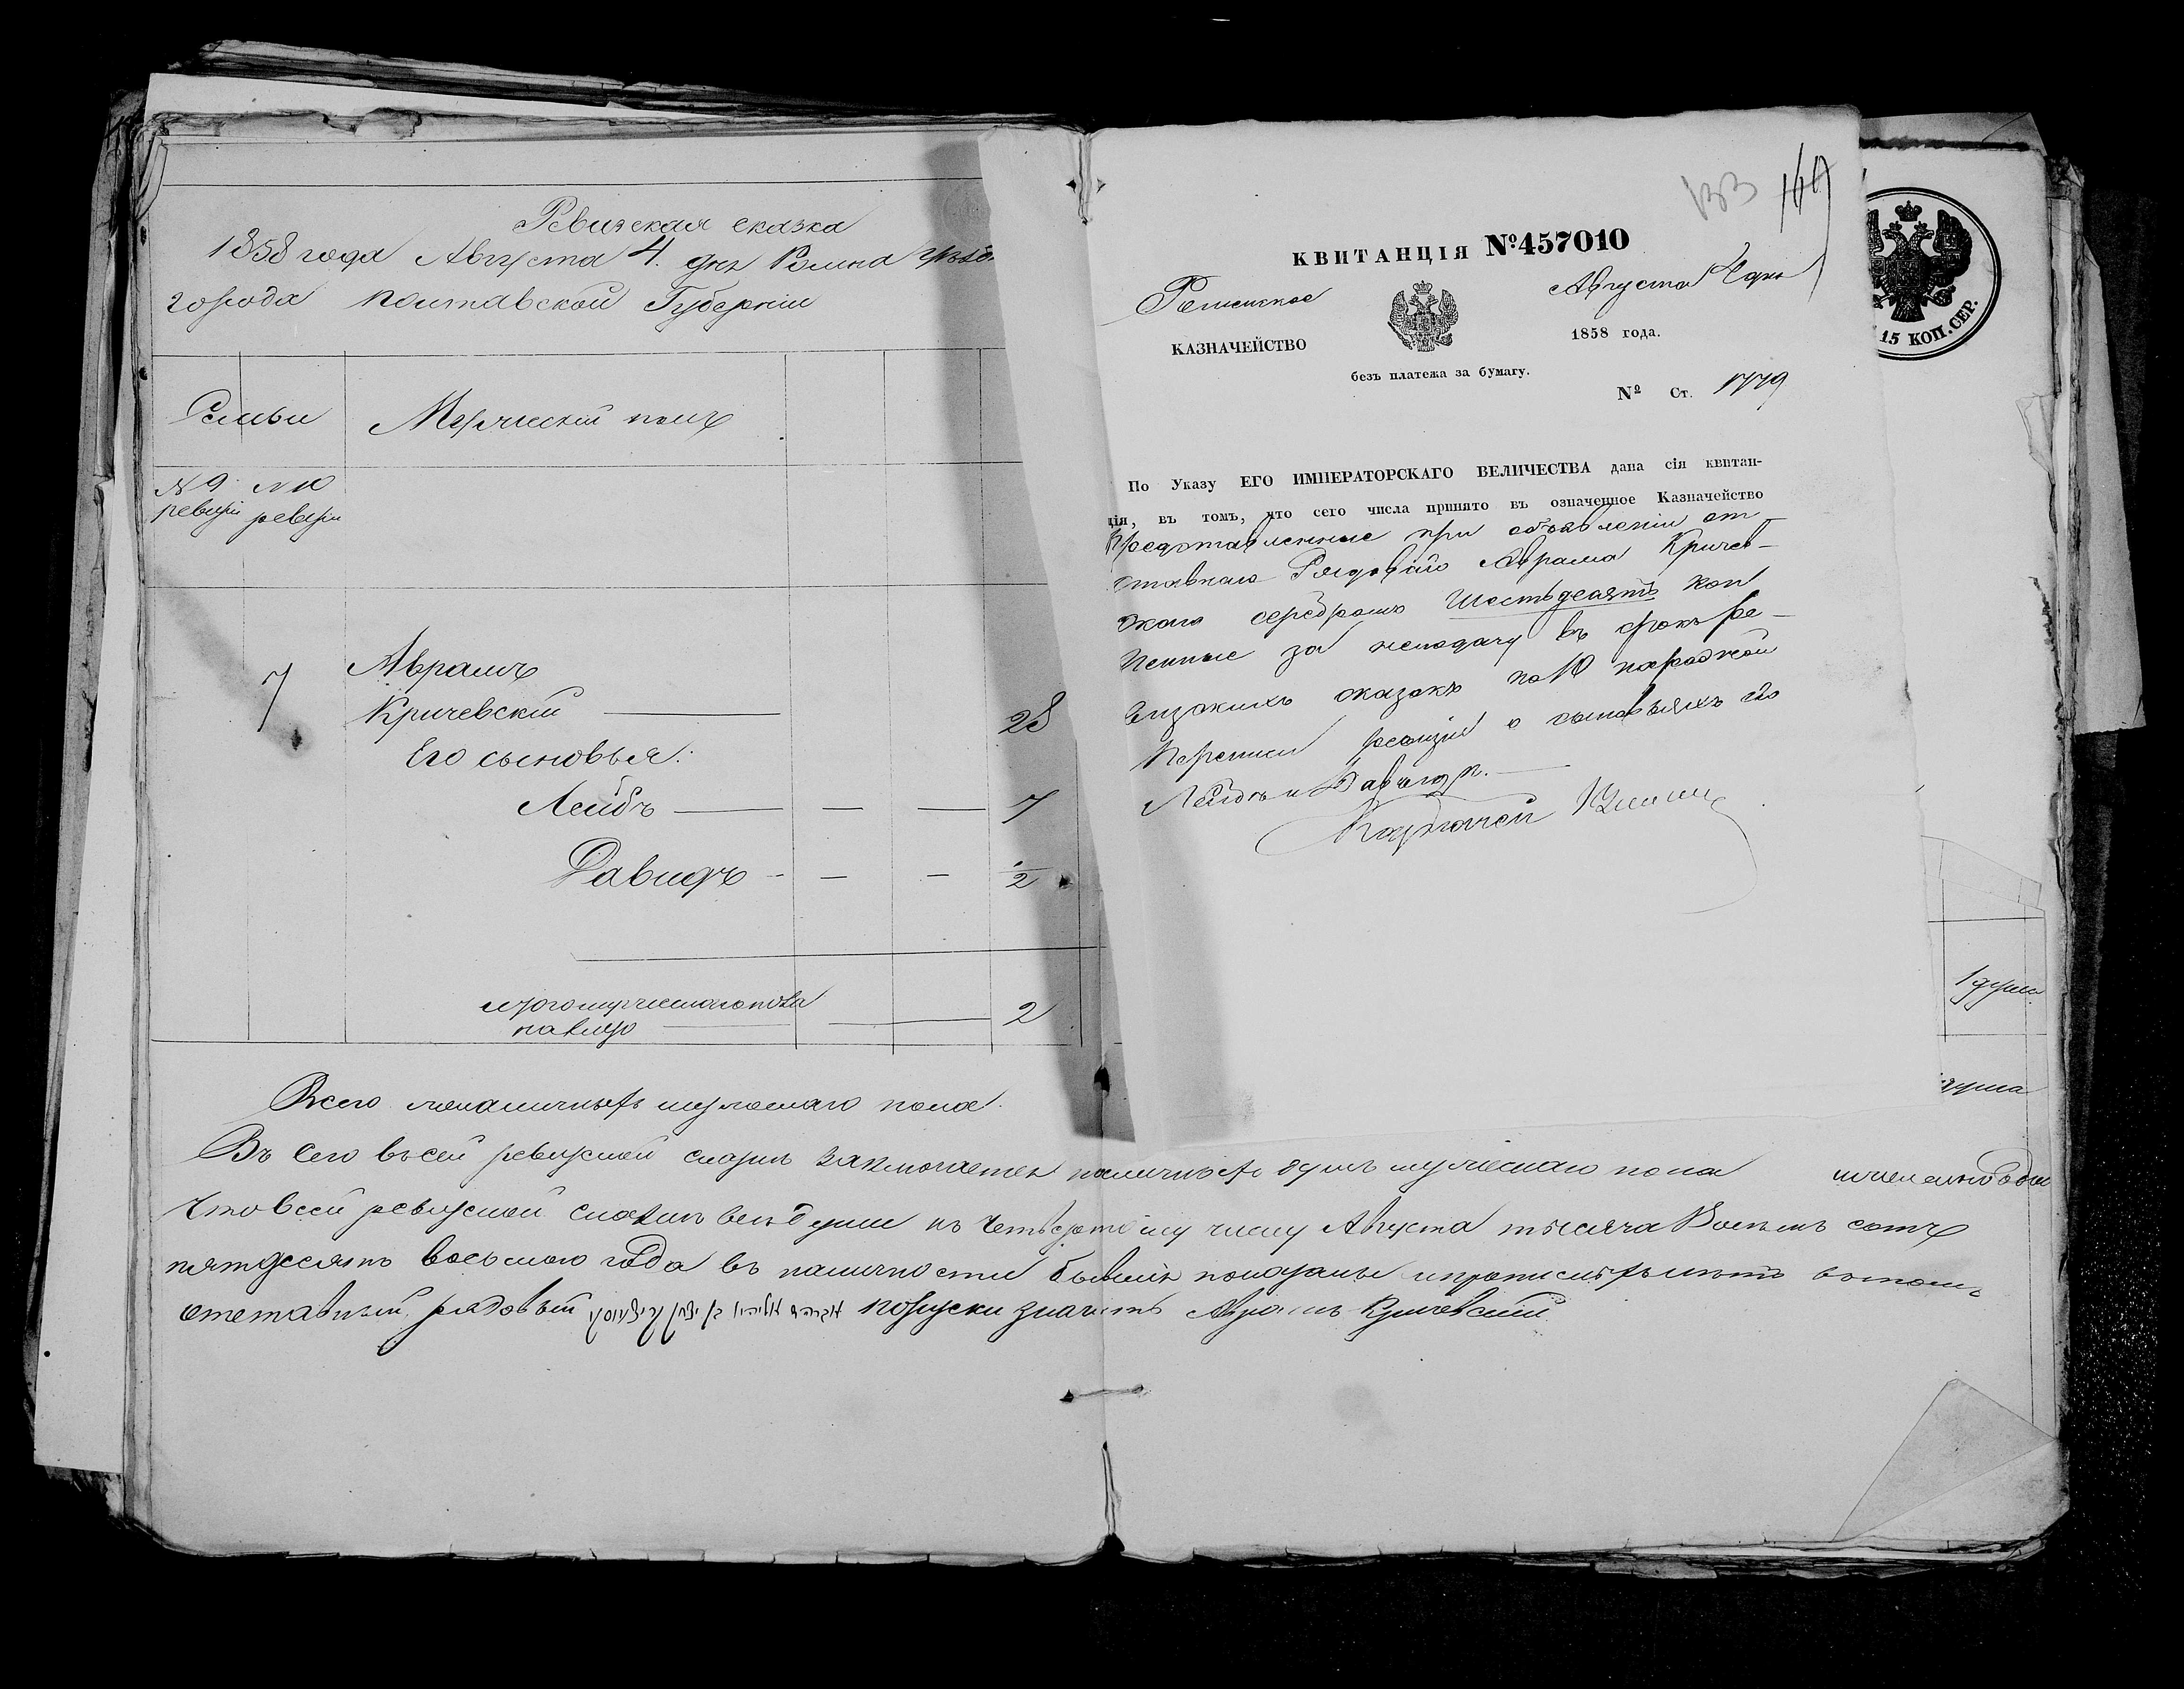 Ревизская сказка
1858 года Августа 4. дня Ромна
города Полтавской Губернии
Семьи
Мужескій полъ
№ 9 ревизіи
№ 10 ревизіи
7
Аврамъ
Кричевскій
28
Его сыновья:
Лейбъ
7
Давидъ
1/2
мужескаго пола
на лицо
2
Всего наличныхъ мужескаго пола
Въ Сего въ сей ревизской сказкѣ заключается наличныхъ душъ мужескаго пола
Что въ сей ревизской сказкѣ всѣ души къ Четвертому числу Августа тысяча Восемь сотъ
пятдесятъ восьмого года въ наличности бывшія показаны
отставный рядовый по Руски значитъ Аврамъ Кричевскій
133
КВИТАНЦІЯ №457010
Роменское
Августа 4 дня
КАЗНАЧЕЙСТВО
1858 года.
безъ платежа за бумагу.
№ Ст. 1779
По Указу ЕГО ИМПЕРАТОРСКАГО ВЕЛИЧЕСТВА дана сія квитан-
ція, въ томъ, что сего числа принято въ означенное Казначейство
Представленные при объявленіи от
ставнаго Рядоваго Аврама Кричев-
скаго серебромъ Шестьдесятъ коп
Пенные за неподачу въ срокъ ре-
визскихъ сказокъ по 10 народной
Переписи ревизіи о сыновьяхъ его
Лейбѣ и Давидѣ.
Казначей
15 КОП. СЕР.
1 душа
душа